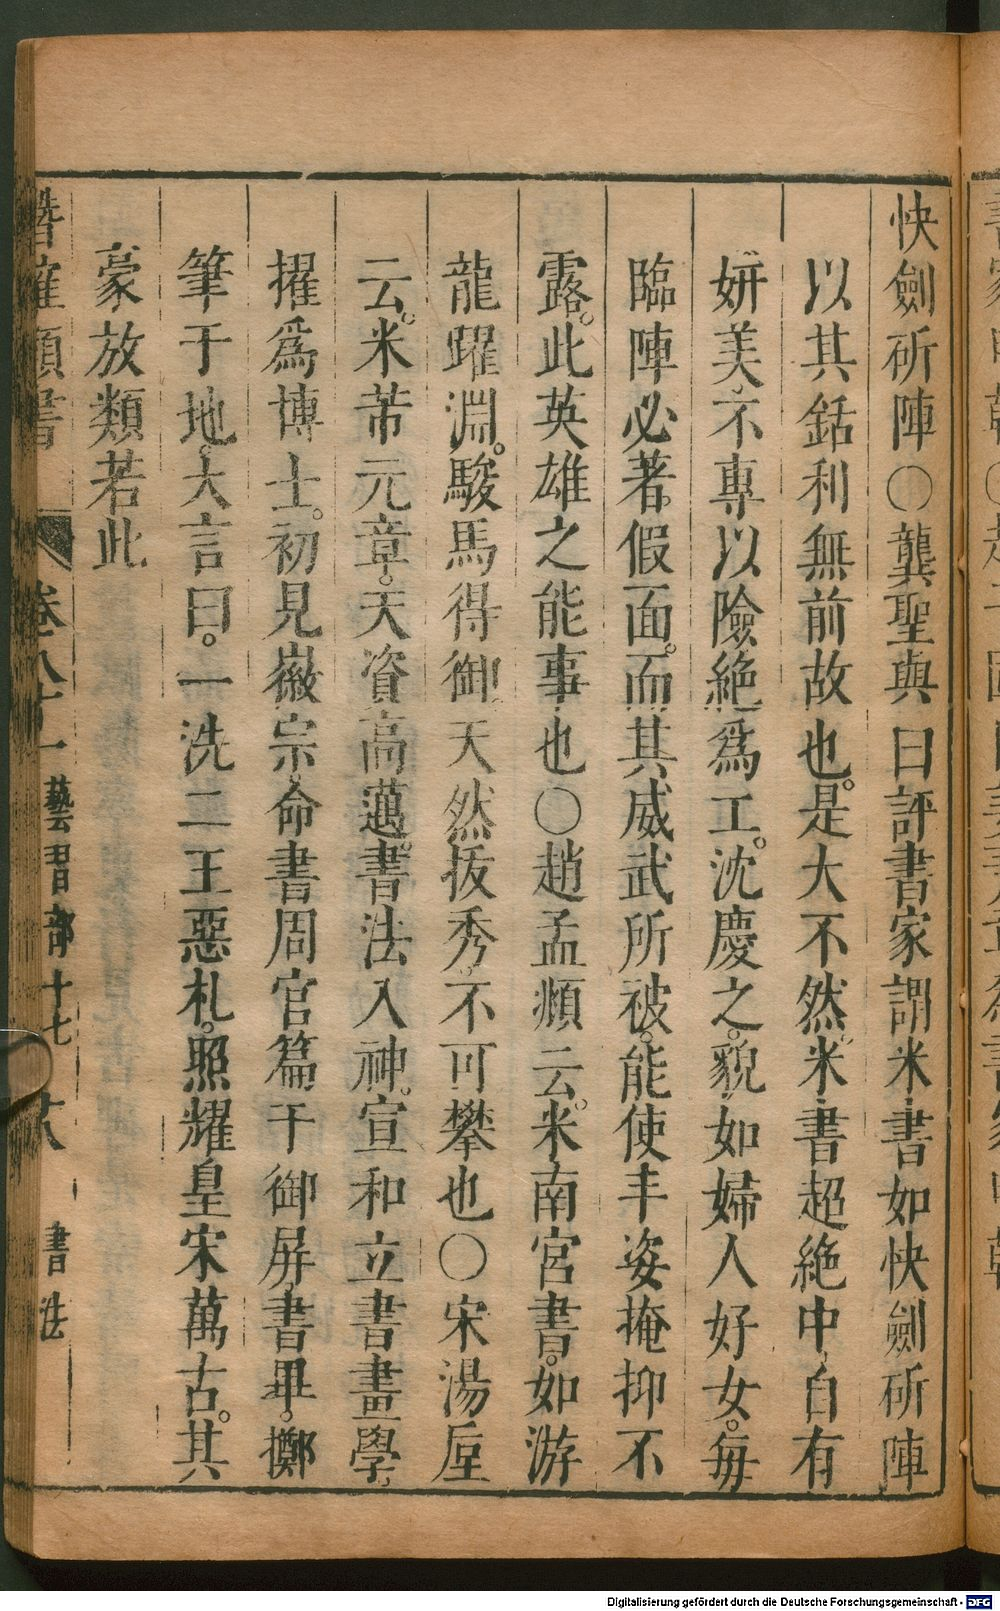 快劍斫陣○龔聖與曰評書家謂米書如快劍斫陣
以其銛利無前故也。是大不然。米書超絶中自有
妍美不專以險絶爲工。沈慶之。貌如婦人好女。每
臨陣必著假面。而其威武所被。能使丰姿掩抑不
露。此英雄之能事也○趙孟頫云。米南宮書。如游
龍躍淵。駿馬得御天然抜秀。不可攀也○宋湯垕
云。米芾元章。天資高邁。書法入神。宣和立書畫學
擢爲博士。初見徽宗命書周官篇于御屏書畢。擲
筆于地。大言曰。一洗二王惡札。照耀皇宋萬古。其
豪放類若此
潛確類書 卷八十一 藝習部十七 十八 書法
Digitalisierung gefördert durch die Deutsche Forschungsgemeinschaft - DFG